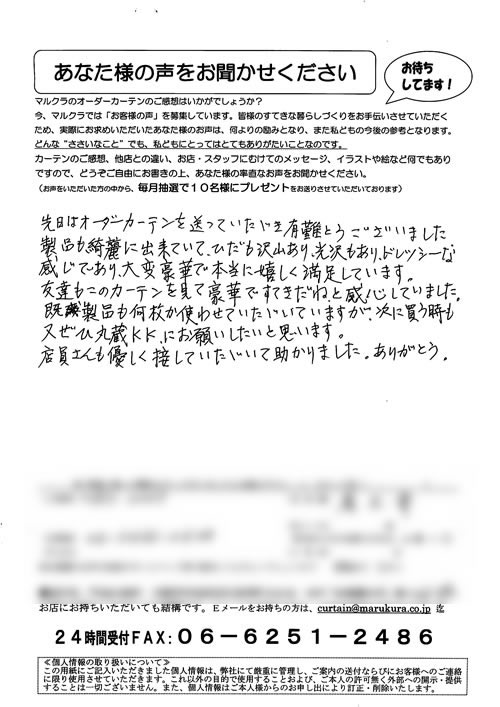 あなた様の声をお聞かせください
お待ち
してます!
マルクラのオーダーカーテンのご感想はいかがでしょうか?
今、マルクラでは「お客様の声」を募集しています。皆様のすてきな暮らしづくりをお手伝いさせていただく
ため、実際にお求めいただいたあなた様のお声は、何よりの励みとなり、また私どもの今後の参考となります。
どんな“ささいなこと”でも、私どもにとってはとてもありがたいことなのです。
カーテンのご感想、他店との違い、お店・スタッフにむけてのメッセージ、イラストや絵など何でもあり
ですので、どうぞご自由にお書きの上、あなた様の率直なお声をお聞かせください。
(お声をいただいた方の中から、毎月抽選で10名様にプレゼントをお送りさせていただいております)
先日はオーダーカーテンを送っていただき有難とうございました
製品も綺麗に出来ていて、ひだも沢山あり、光沢もあり、ドレッシーな
感じであり、大変豪華で本当に嬉しく満足しています。
友達もこのカーテンを見て豪華ですてきだねと感心していました。
既製品も何枚か使わせていただいていますが、次に買う時も
又ぜひ丸蔵KK、にお願いしたいと思います。
店員さんも優しく接していただいて助かりました。ありがとう。
お店にお持ちいただいても結構です。Eメールをお持ちの方は、curtain@marukura.co.jp 迄
24時間受付FAX:06-6251-2486
≪個人情報の取り扱いについて≫
この用紙にご記入いただきました個人情報は、弊社にて厳重に管理し、ご案内の送付ならびにお客様へのご連絡
に限り使用させていただきます。これ以外の目的で使用することおよび、ご本人の許可無く外部への開示・提供
することは一切ございません。また、個人情報はご本人様からのお申し出により訂正・削除いたします。